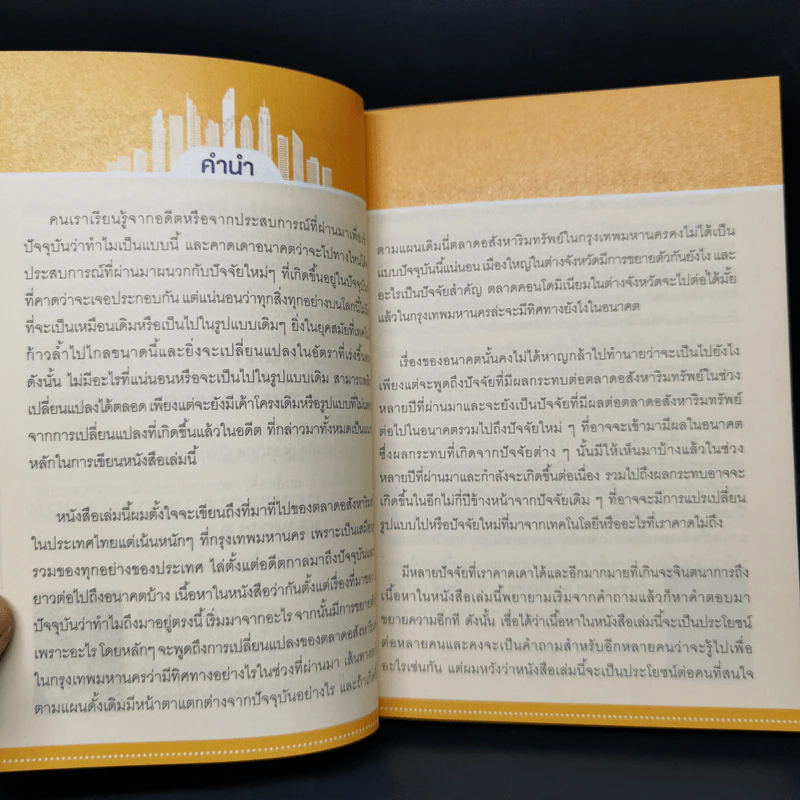 คำนำ
คนเราเรียนรู้จากอดีตหรือจากประสบการณ์ที่ผ่านมาเพื่อ
ปัจจุบันว่าทำไมเป็นแบบนี้ และคาดเดาอนาคตว่าจะไปทางไหน
ประสบการณ์ที่ผ่านมาผนวกกับปัจจัยใหม่ๆ ที่เกิดขึ้นอยู่ในปัจจุบัน
ที่คาดว่าจะเจอประกอบกัน แต่แน่นอนว่าทุกสิ่งทุกอย่างบนโลกนี้
ที่จะเป็นเหมือนเดิมหรือเป็นไปในรูปแบบเดิมๆ ยิ่งในยุคสมัยที่
ก้าวล้ำไปไกลขนาดนี้และยิ่งจะเปลี่ยนแปลงในอัตราที่เร่งขึ้น
ดังนั้น ไม่มีอะไรที่แน่นอนหรือจะเป็นไปในรูปแบบเดิม สามารถ
เปลี่ยนแปลงได้ตลอด เพียงแต่จะยังมีเค้าโครงเดิมหรือรูปแบบที่
จากการเปลี่ยนแปลงที่เกิดขึ้นแล้วในอดีต ที่กล่าวมาทั้งหมดเป็น
หลักในการเขียนหนังสือเล่มนี้
หนังสือเล่มนี้ผมตั้งใจจะเขียนถึงที่มาที่ไปของตลาดอสังหาริม
ในประเทศไทยแต่เน้นหนักๆ ที่กรุงเทพมหานคร เพราะเป็นเสมือน
รวมของทุกอย่างของประเทศ ไล่ตั้งแต่อดีตกาลมาถึงปัจจุบันและ
ยาวต่อไปถึงอนาคตบ้าง เนื้อหาในหนังสือว่ากันตั้งแต่เรื่องที่มาของ
ปัจจุบันว่าทำไมถึงมาอยู่ตรงนี้ เริ่มมาจากอะไร จากนั้นมีการขยาย
เพราะอะไร โดยหลักๆ จะพูดถึงการเปลี่ยนแปลงของตลาดอสังหาริม
ในกรุงเทพมหานครว่ามีทิศทางอย่างไรในช่วงที่ผ่านมา เส้นทาง
ตามแผนดั้งเดิมมีหน้าตาแตกต่างจากปัจจุบันอย่างไร และถ้า
ตามแผนเดิมนี่ตลาดอสังหาริมทรัพย์ในกรุงเทพมหานครคงไม่ได้เป็น
แบบปัจจุบันนี้แน่นอน เมืองใหญ่ในต่างจังหวัดมีการขยายตัวกันยังไง และ
อะไรเป็นปัจจัยสำคัญ ตลาดคอนโดมิเนียมในต่างจังหวัดจะไปต่อได้มั้ย
แล้วในกรุงเทพมหานครล่ะจะมีทิศทางยังไงในอนาคต
เรื่องของอนาคตนั้นคงไม่ได้หาญกล้าไปทำนายว่าจะเป็นไปยังไง
เพียงแต่จะพูดถึงปัจจัยที่มีผลกระทบต่อตลาดอสังหาริมทรัพย์ในช่วง
หลายปีที่ผ่านมาและจะยังเป็นปัจจัยที่มีผลต่อตลาดอสังหาริมทรัพย์
ต่อไปในอนาคตรวมไปถึงปัจจัยใหม่ ๆ ที่อาจจะเข้ามามีผลในอนาคต
ซึ่งผลกระทบที่เกิดจากปัจจัยต่าง ๆ นั้นมีให้เห็นมาบ้างแล้วในช่วง
หลายปีที่ผ่านมาและกำลังจะเกิดขึ้นต่อเนื่อง รวมไปถึงผลกระทบอาจจะ
เกิดขึ้นในอีกไม่กี่ปีข้างหน้าจากปัจจัยเดิม ๆ ที่อาจจะมีการแปรเปลี่ยน
รูปแบบไปหรือปัจจัยใหม่ที่มาจากเทคโนโลยีหรืออะไรที่เราคาดไม่ถึง
มีหลายปัจจัยที่เราคาดเดาได้และอีกมากมายที่เกินจะจินตนาการถึง
เนื้อหาในหนังสือเล่มนี้พยายามเริ่มจากคำถามแล้วก็หาคำตอบมา
ขยายความอีกที ดังนั้น เชื่อได้ว่าเนื้อหาในหนังสือเล่มนี้จะเป็นประโยชน์
ต่อหลายคนและคงจะเป็นคำถามสำหรับอีกหลายคนว่าจะรู้ไปเพื่อ
อะไรเช่นกัน แต่ผมหวังว่าหนังสือเล่มนี้จะเป็นประโยชน์ต่อคนที่สนใจ